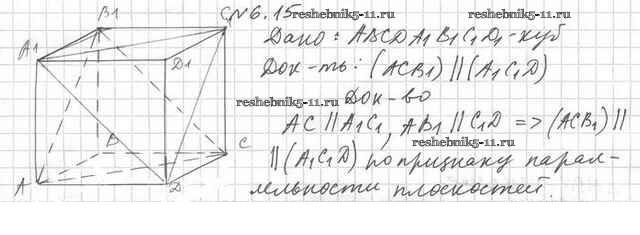 B1
C1
A1
D1
B
C
A
D
№6.15
reshebnik5-11.ru
reshebnik5-11.ru
Дано: ABCDA1B1C1D1-куб
Док-ть: (ACB1) || (A1C1D)
reshebnik5-11.ru
Док-во
AC || A1C1, AB1 || C1D => (ACB1) ||
reshebnik5-11.ru
reshebnik5-11.ru
|| (A1C1D) по признаку парал-
лельности плоскостей.